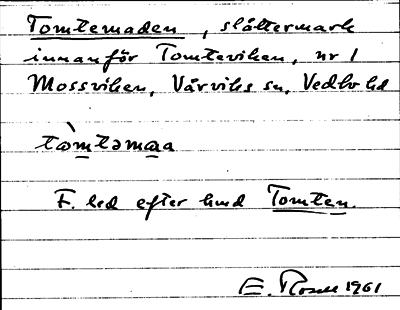 Tomtemaden, slåttermark
innanför Tomteviken, nr 1
Mossviken, Vårviks sn, Vedbo hd
tòmtəmaa
F. led efter hmd Tomten.
E. 1961